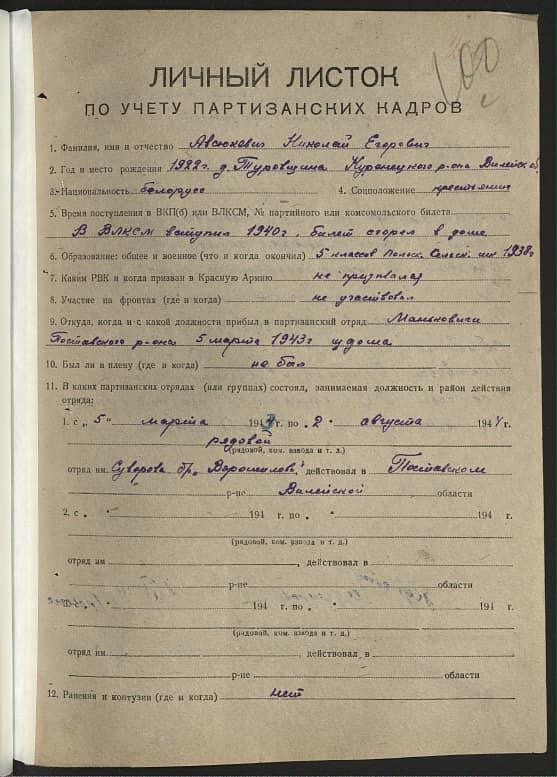 100
ЛИЧНЫЙ ЛИСТОК
ПО УЧЕТУ ПАРТИЗАНСКИХ КАДРОВ
1. Фамилия, имя и отчество Авсюкевич Николай Егорович
2. Год и место рождения 1922г. д. Туровщина Куренецкого р-она Вилейск об.
3. Национальность белорусс 4. Соцположение крестьянин
5. Время поступления в ВКП(б) или ВЛКСМ, № партийного или комсомольского билета
В ВЛКСМ вступил 1940г, билет сгорел в доме
6. Образование: общее и военное (что и когда окончил) 5 классов Польск. Сельск. шк 1938г
7. Каким РВК и когда призван в Красную Армию не призвался
8. Участие на фронтах (где и когда) не участвовал
9. Откуда, когда и с какой должности прибыл в партизанский отряд Маньковичи
Поставского р-она 5 марта 1943г из дома
10. Был ли в плену (где и когда) не был
11. В каких партизанских отрядах (или группах) состоял, занимаемая должность и район действия
отряда:
1. с „5" марта 194 г. по „2" августа 1944г.
рядовой
(рядовой, ком. взвода и т. д.)
отряд им. Суворова бр. „Ворошилова", действовал в Поставском
р-не Вилейской области
2. с „ " 194 г. по „ " 194 г.
(рядовой, ком. взвода и т. д.)
отряд им. , действовал в
р-не области
194 г. по „ " 194 г.
(рядовой, ком. взвода и т. д.)
отряд им. , действовал в
р-не области
12. Ранения и контузии (где и когда) нет